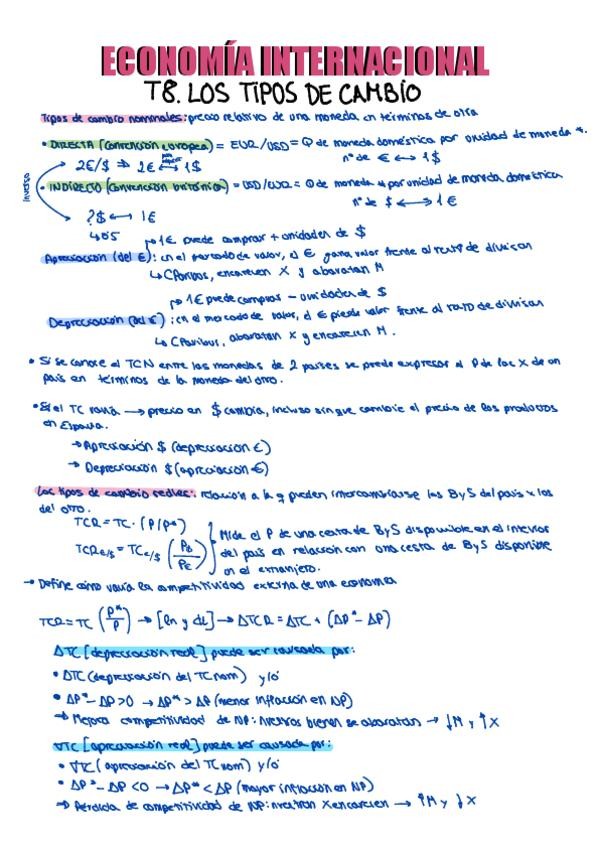 ECONOMÍA INTERNACIONAL
T8. LOS TIPOS DE CAMBIO
Tipos de cambio nominales: precio relativo de una moneda en términos de otra
• DIRECTA (convención europea) = EUR/USD = Q de moneda doméstica por unidad de moneda *.
2€/$ ⇒ 2€ ⟷ 1$
para comprar
nº de € ⟷ 1$
inverso
• INDIRECTO (convención británica) = USD/EUR = Q de moneda * por unidad de moneda doméstica
nº de $ ⟷ 1€
?$ ⟷ 1€
↳ 0'5
↱ 1€ puede comprar + unidades de $
Apreciación (del €): en el mercado de valor, el € gana valor frente al resto de divisas
↳ CParibus, encarecen X y abaratan M
↱ 1€ puede comprar – unidades de $
Depreciación (del €): en el mercado de valor, el € pierde valor frente al resto de divisas
↳ CParibus, abaratan X y encarecen M.
• Si se conoce el TCN entre las monedas de 2 países se puede expresar el P de las X de un
país en términos de la moneda del otro.
• Si el TC varía → precio en $ cambia, incluso sin que cambie el precio de los productos
en España.
→ Apreciación $ (depreciación €)
→ Depreciación $ (apreciación €)
Los tipos de cambio reales: relación a la q pueden intercambiarse los ByS del país x los
del otro.
TCR = TC · (P/P*)
TCR€/$ = TC€/$ (P$/P€)
Mide el P de una cesta de ByS disponible en el interior
del país en relación con una cesta de ByS disponible
en el extranjero.
→ Define cómo varía la competitividad externa de una economía
TCR = TC (P*/P) → [ln y dt] → ΔTCR = ΔTC + (ΔP* - ΔP)
ΔTC [depreciación real] puede ser causada por:
• ΔTC (depreciación del TC nom) y/o
• ΔP* - ΔP > 0 → ΔP* > ΔP (menor inflación en NP)
→ Mejora competitividad de NP: nuestros bienes se abaratan → ↓M y ↑X
∇TC [apreciación real] puede ser causada por:
• ∇TC (apreciación del TC nom) y/o
• ΔP* - ΔP < 0 → ΔP* < ΔP (mayor inflación en NP)
→ Pérdida de competitividad de NP: nuestras X encarecen → ↑M y ↓X